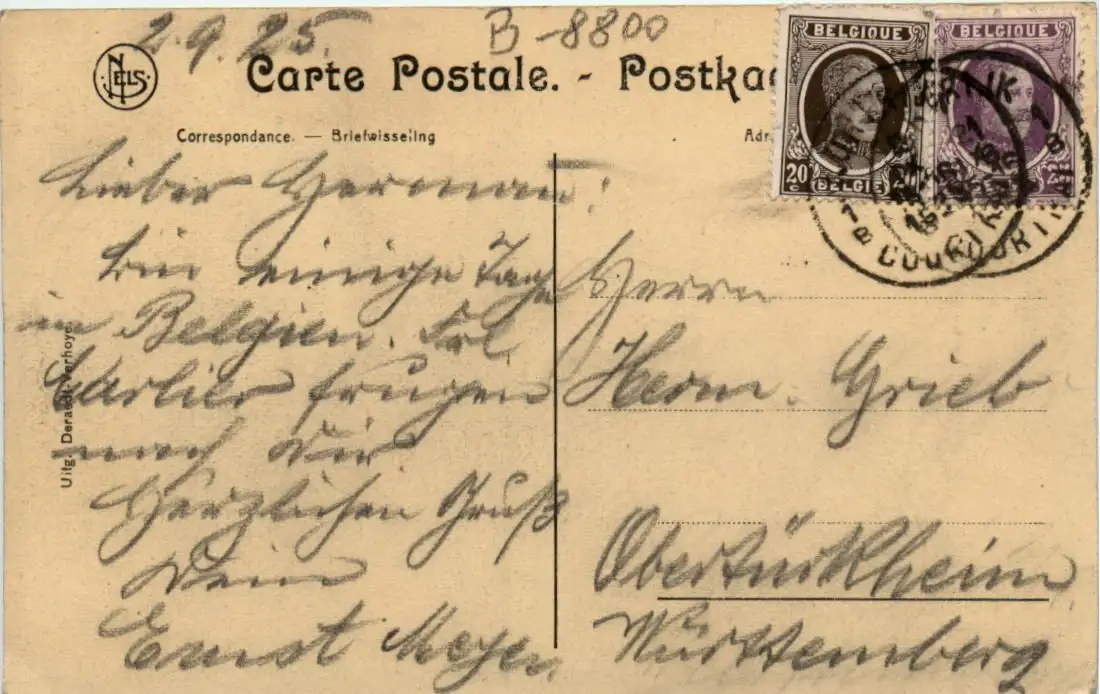 2.9.25.
B-8800
NELS
Carte Postale. - Postka
Correspondance. — Briefwisseling
Adr
BELGIQUE
20 C
BELGIË
BELGIQUE
KORTRIJK
1B COURTRAI 1B
Lieber Herman!
bin einige Tage
in Belgien. Frl.
Carlier frugen
nach Dir
Herzlichen Gruß
Dein
Ernst Meyer
Uitg. Deraedt-Verhoye
Herrn
Herm. Grieb
Obertürkheim
Württemberg